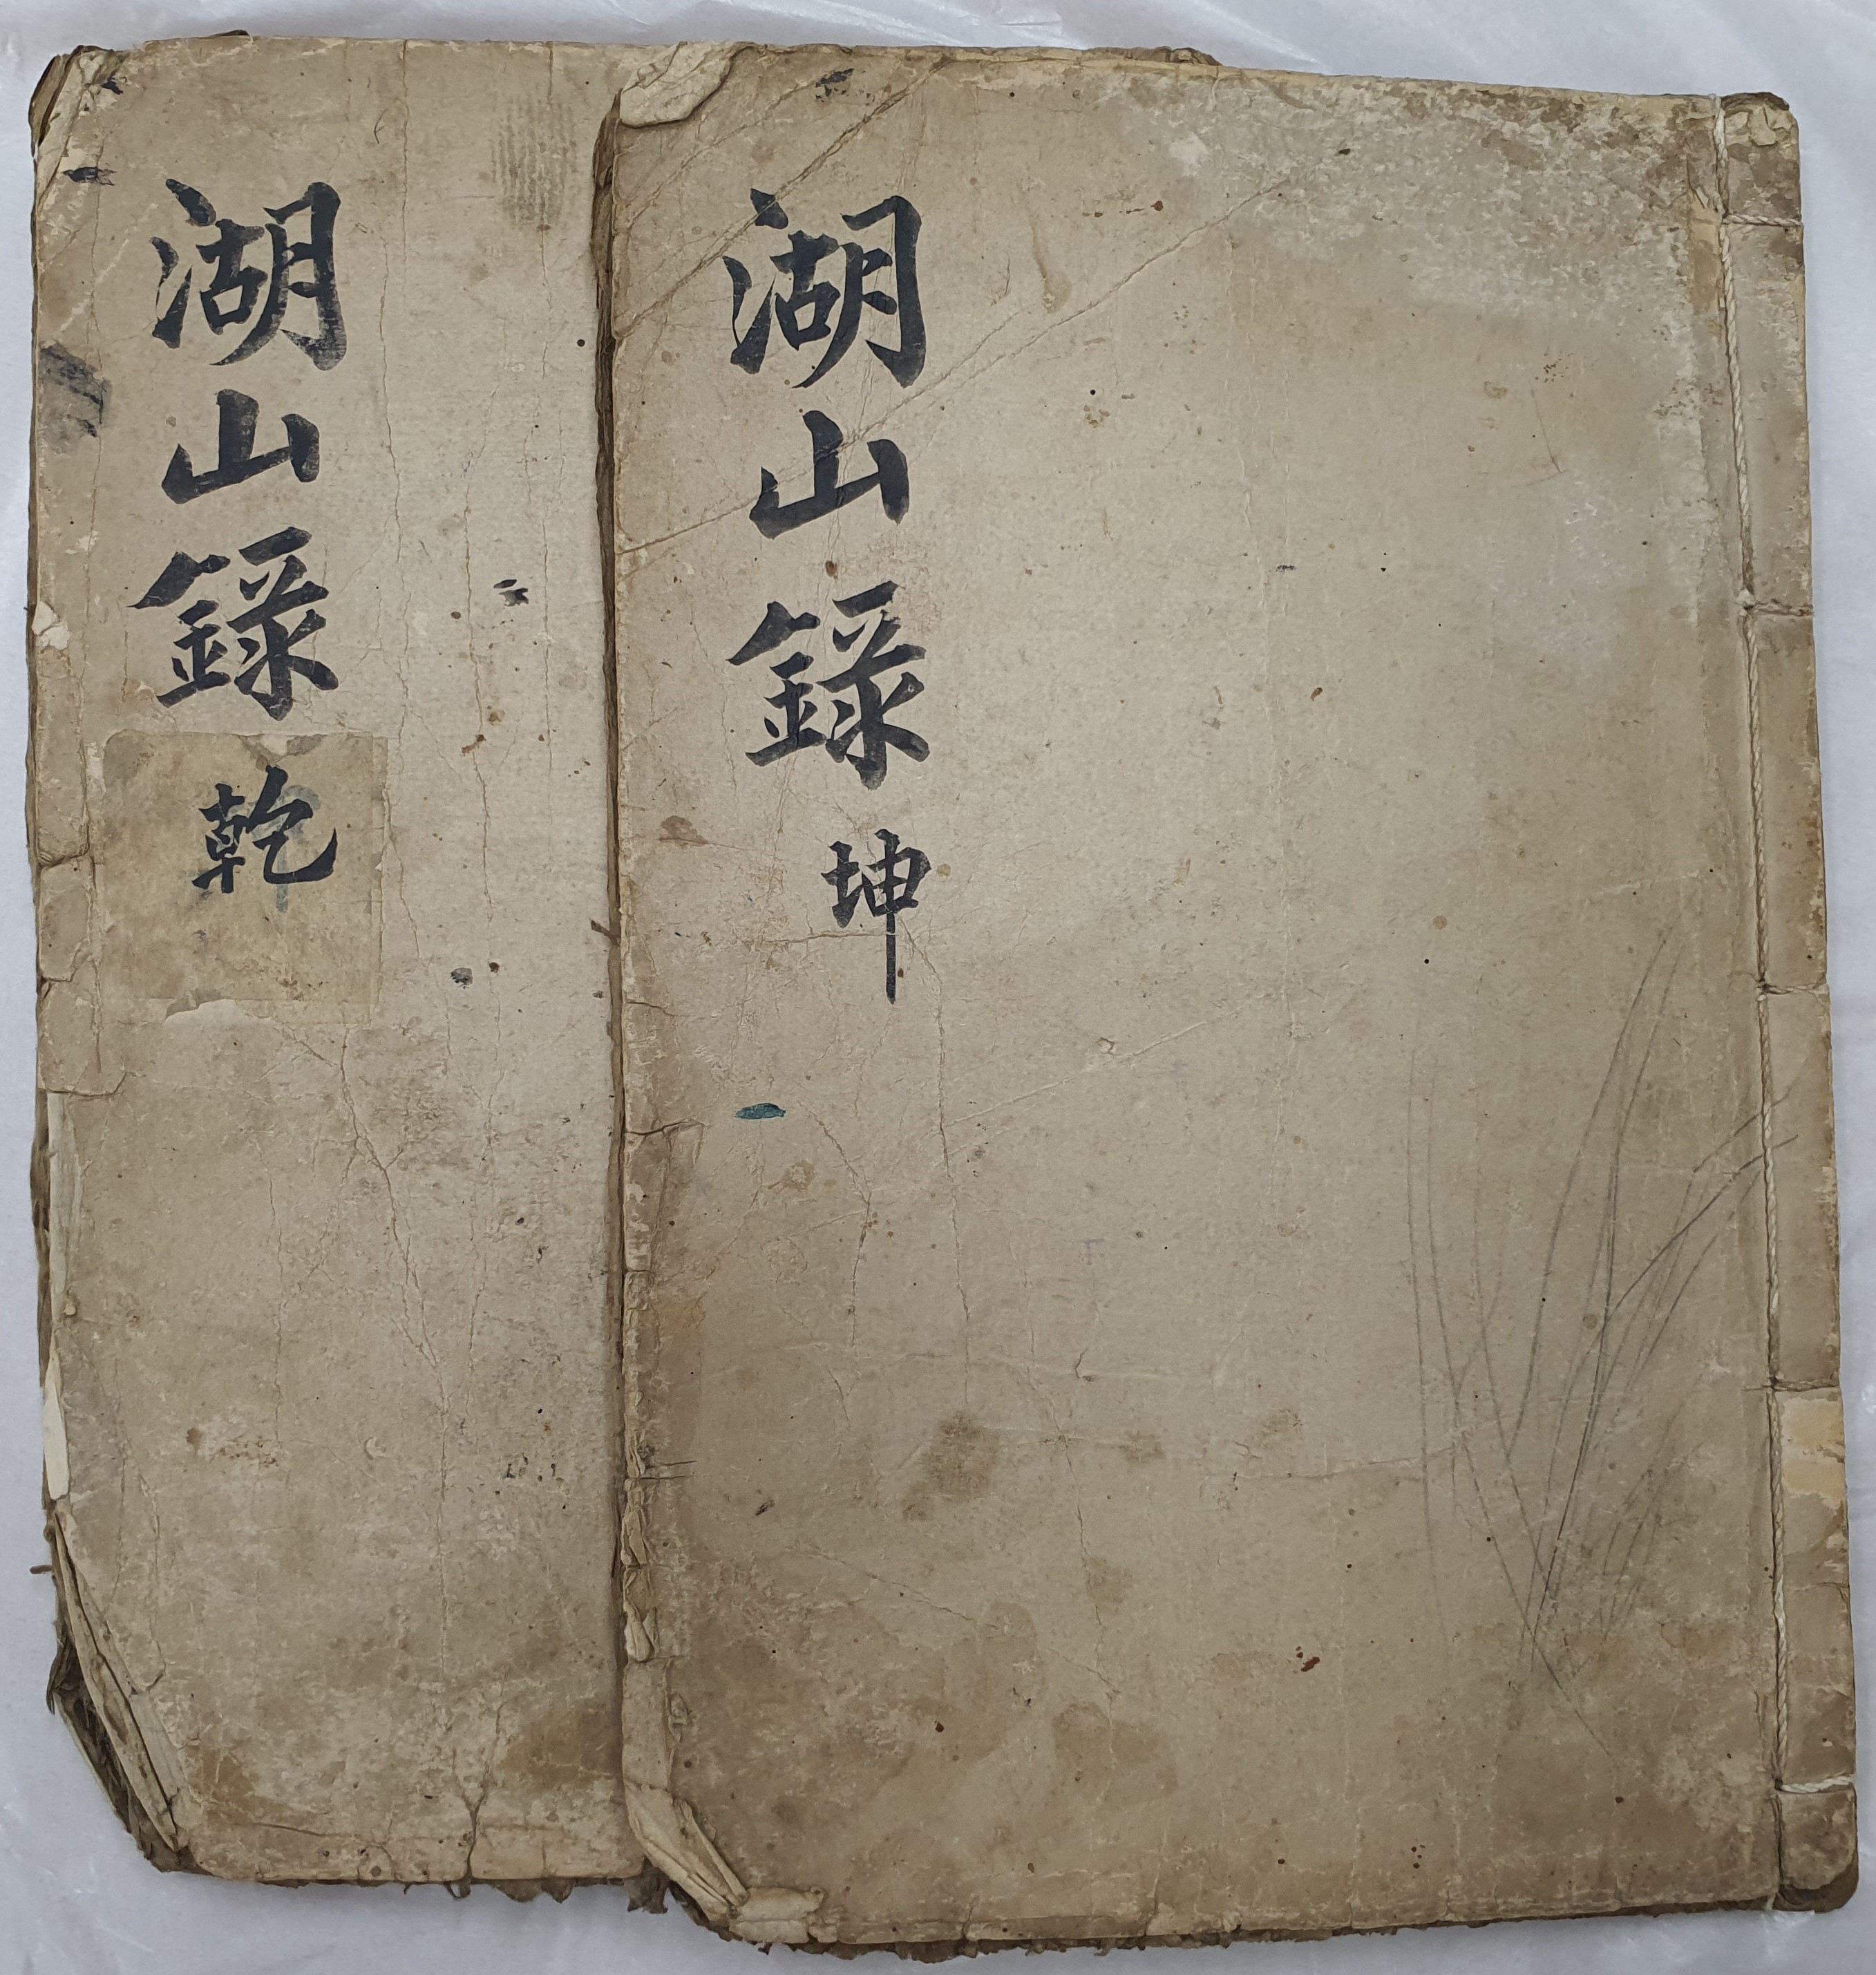 湖山錄坤
湖山錄乾